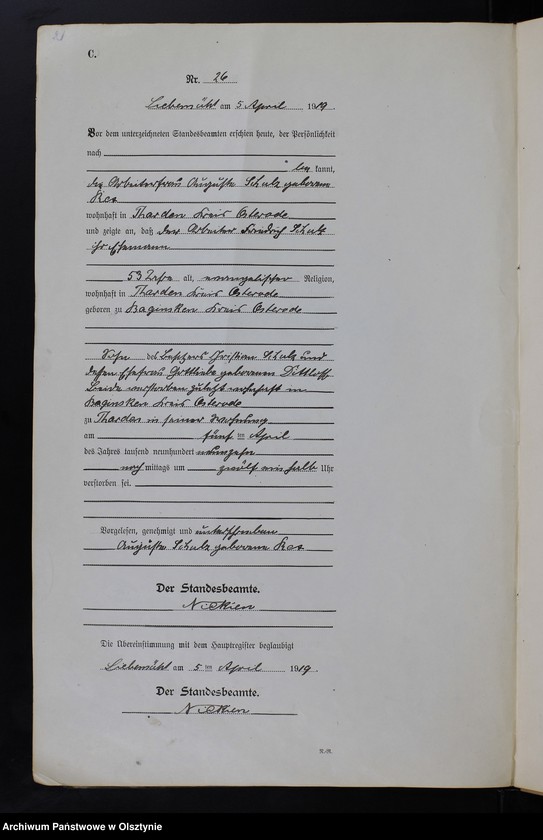 C.
Nr. 26
Liebemühl am 5 April 1919.
Vor dem unterzeichneten Standesbeamten erschien heute, der Persönlichkeit
nach
be kannt,
die Arbeiterfrau Auguste Schulz geborene
wohnhaft in Tharden Kreis Osterode
und zeigte an, daß der Arbeiter Friedrich Schulz
ihr Ehemann
53 Jahre alt, evangelischer Religion,
wohnhaft in Tharden Kreis Osterode
geboren zu Baginsken Kreis Osterode
Sohn des Besitzers Christian Schulz und
dessen Ehefrau Gottliebe geborenen Dittloff
beide verstorben zuletzt wohnhaft in
Baginsken Kreis Osterode
zu Tharden in seiner Wohnung
am fünf ten April
des Jahres tausend neunhundert neunzehn
nach mittags um zwölf ein halb Uhr
verstorben sei.
Vorgelesen, genehmigt und unterschrieben
Auguste Schulz geborene
Der Standesbeamte.
Die Übereinstimmung mit dem Hauptregister beglaubigt
Liebemühl am 5 ten April 1919.
Der Standesbeamte.
Archiwum Państwowe w Olsztynie